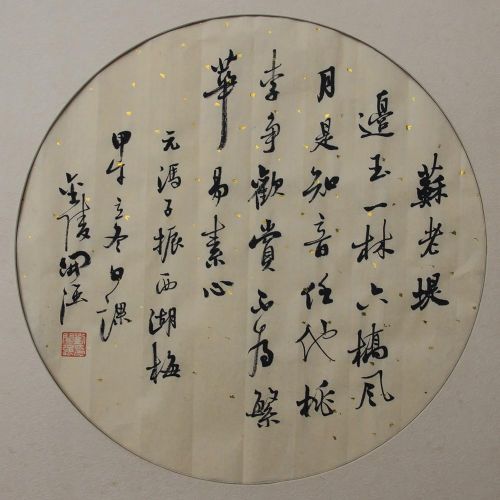 蘇老堤
邊玉一林六橋風
月是知音任他桃
李争歡賞不為繁
華易素心
元馮子振西湖梅
甲午立冬日課
金陵